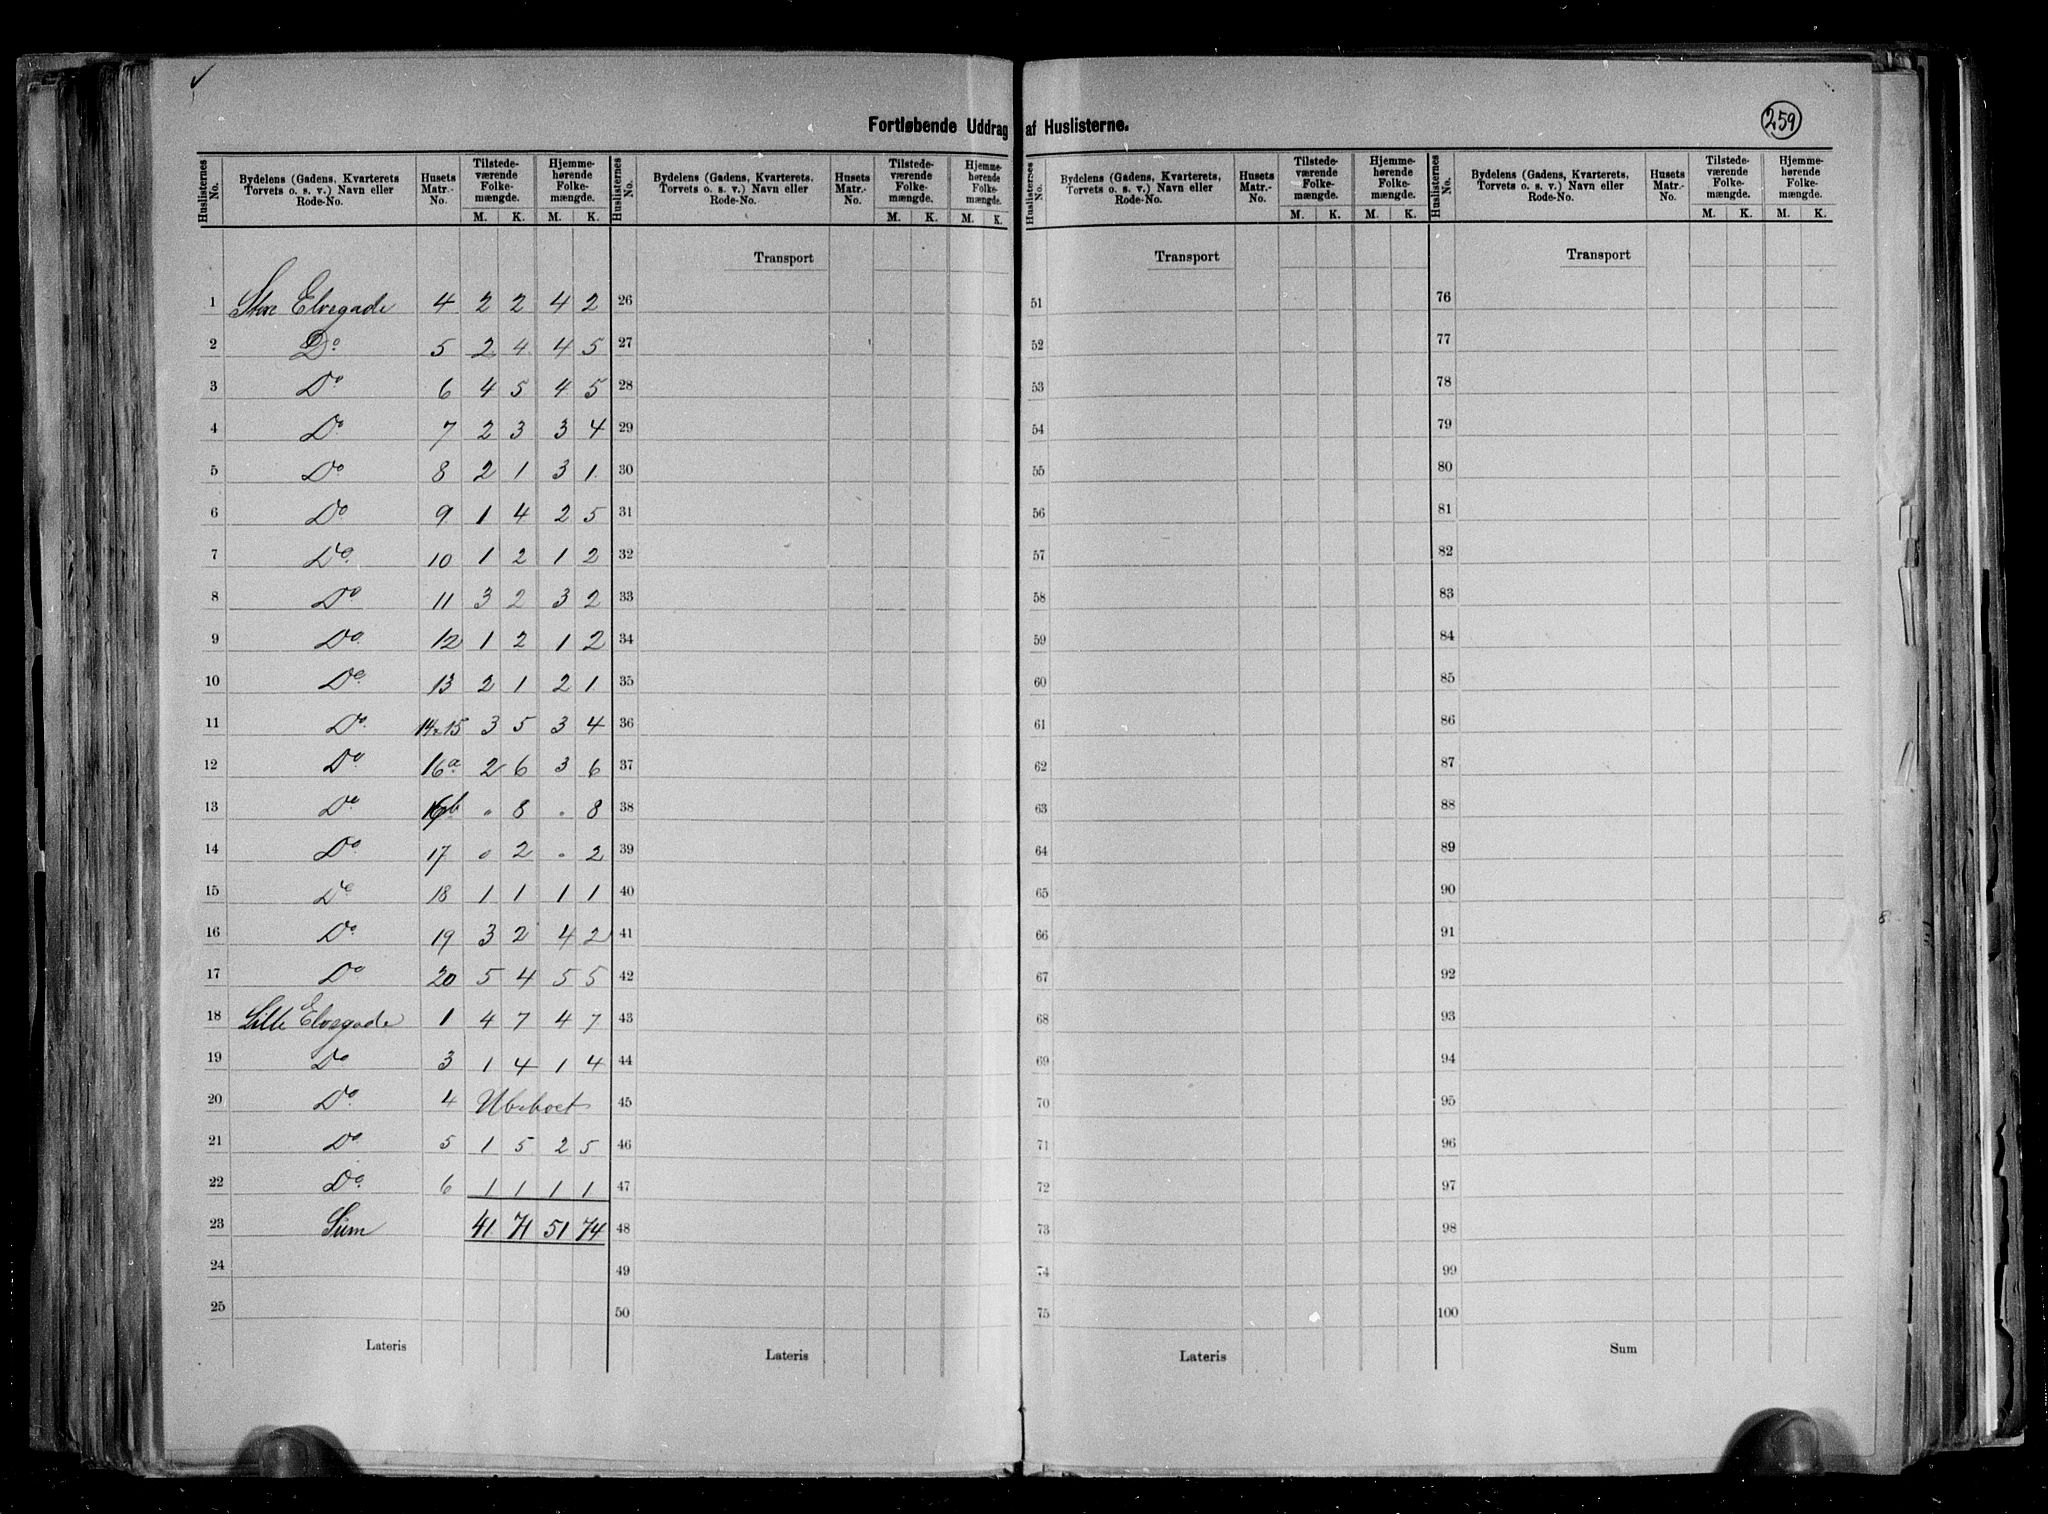 259
Fortløbende Uddrag af Huslisterne.
Huslisternes No. | Bydelens (Gadens, Kvarterets, Torvets o. s. v.) Navn eller Rode-No. | Husets Matr.-No. | Tilstedeværende Folkemængde. M. K. | Hjemmehørende Folkemængde. M. K.
Huslisternes No. | Bydelens (Gadens, Kvarterets, Torvets o. s. v.) Navn eller Rode-No. | Husets Matr.-No. | Tilstedeværende Folkemængde. M. K. | Hjemmehørende Folkemængde. M. K.
Huslisternes No. | Bydelens (Gadens, Kvarterets, Torvets o. s. v.) Navn eller Rode-No. | Husets Matr.-No. | Tilstedeværende Folkemængde. M. K. | Hjemmehørende Folkemængde. M. K.
Huslisternes No. | Bydelens (Gadens, Kvarterets, Torvets o. s. v.) Navn eller Rode-No. | Husets Matr.-No. | Tilstedeværende Folkemængde. M. K. | Hjemmehørende Folkemængde. M. K.
Transport Transport Transport
1 Store Elvegade 4 2 2 4 2 26 51 76
2 Do 5 2 4 4 5 27 52 77
3 Do 6 4 5 4 5 28 53 78
4 Do 7 2 3 3 4 29 54 79
5 Do 8 2 1 3 1 30 55 80
6 Do 9 1 4 2 5 31 56 81
7 Do 10 1 2 1 2 32 57 82
8 Do 11 3 2 3 2 33 58 83
9 Do 12 1 2 1 2 34 59 84
10 Do 13 2 1 2 1 35 60 85
11 Do 14 & 15 3 5 3 4 36 61 86
12 Do 16a 2 6 3 6 37 62 87
13 Do 16b " 8 " 8 38 63 88
14 Do 17 " 2 " 2 39 64 89
15 Do 18 1 1 1 1 40 65 90
16 Do 19 3 2 4 2 41 66 91
17 Do 20 5 4 5 5 42 67 92
18 Lille Elvegade 1 4 7 4 7 43 68 93
19 Do 3 1 4 1 4 44 69 94
20 Do 4 Ubeboet 45 70 95
21 Do 5 1 5 2 5 46 71 96
22 Do 6 1 1 1 1 47 72 97
23 Sum 41 71 51 74 48 73 98
24 49 74 99
25 50 75 100
Lateris Lateris Lateris Sum